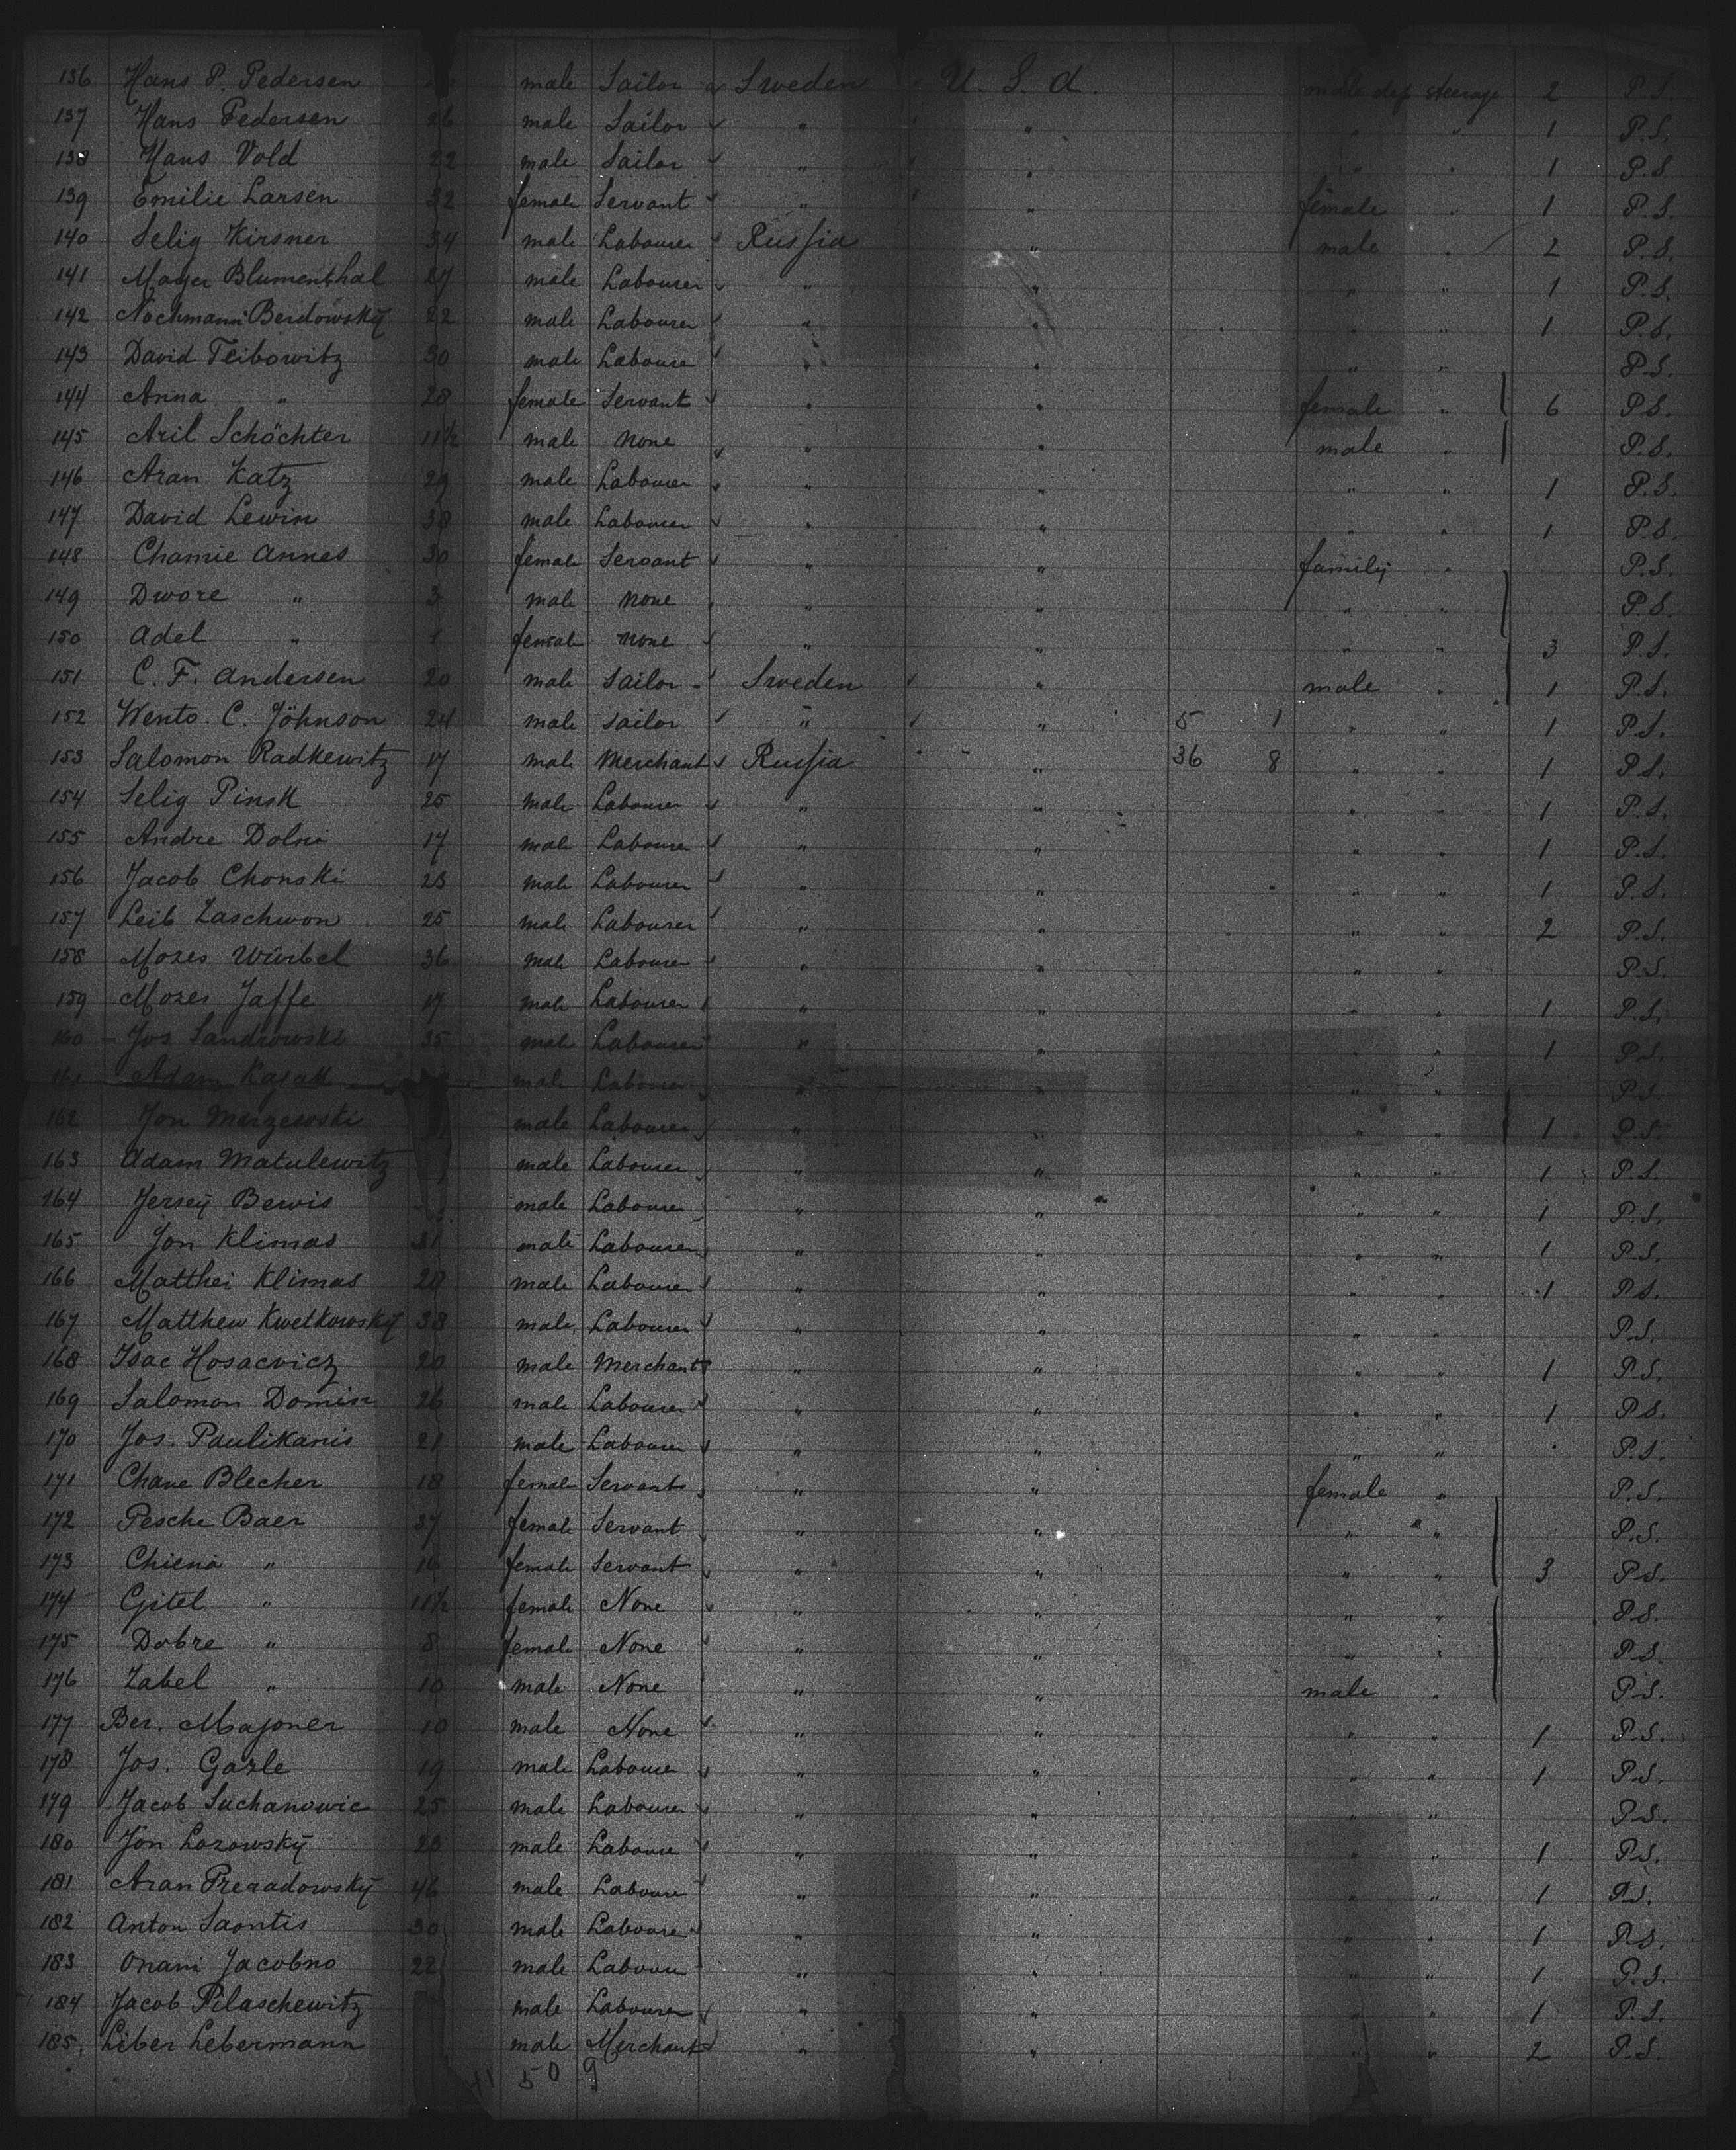 136 Hans P. Pedersen male Sailor Sweden U. S. A. male dep steerage 2 P.S.
137 Hans Pedersen 26 male Sailor " " " " 1 P.S.
138 Hans Vold 22 male Sailor " " " " 1 P.S.
139 Emilie Larsen 32 female Servant " " female " 1 P.S.
140 Selig Kirsner 34 male Labourer Russia " male " 2 P.S.
141 Mayer Blumenthal 27 male Labourer " " " " 1 P.S.
142 Nochmann Berdowsky 22 male Labourer " " " " 1 P.S.
143 David Teibowitz 30 male Laboure " " " " P.S.
144 Anna " 28 female Servant " " female " 6 P.S.
145 Aril Schöchter 11½ male none " " male " P.S.
146 Aran Katz 29 male Labourer " " " " 1 P.S.
147 David Lewin 38 male Labourer " " " " 1 P.S.
148 Chamie Annes 30 female Servant " " family " P.S.
149 Dwore " 3 male none " " " " P.S.
150 Adel " 1 female none " " " " 3 P.S.
151 C. F. Andersen 20 male sailor Sweden " male " 1 P.S.
152 Wento. C. Jöhnson 24 male sailor " " 5 1 " " 1 P.S.
153 Salomon Radkewitz 17 male Merchant Russia " 36 8 " " 1 P.S.
154 Selig Pinsk 25 male Labourer " " " " 1 P.S.
155 Andre Dolni 17 male Labourer " " " " 1 P.S.
156 Jacob Chonski 23 male Labourer " " " " 1 P.S.
157 Leib Zaschwon 25 male Labourer " " " " 2 P.S.
158 Mozes Würbel 36 male Labourer " " " " P.S.
159 Mozes Jaffe 17 male Labourer " " " " 1 P.S.
160 Jos Sandrowski 35 male Labourer " " " " 1 P.S.
161 Adam Kasak male Labourer " " " " P.S.
162 Jon Marzewski male Labourer " " " " 1 P.S.
163 Adam Matulewitz male Labourer " " " " 1 P.S.
164 Jersey Bewis male Labourer " " " " 1 P.S.
165 Jon Klimas 21 male Labourer " " " " 1 P.S.
166 Matthei Klimas 20 male Labourer " " " " 1 P.S.
167 Matthew Kwetkowsky 38 male Labourer " " " " P.S.
168 Isac Hosacvicz 20 male Merchant " " " " 1 P.S.
169 Salomon Domin 26 male Labourer " " " " 1 P.S.
170 Jos. Paulikanis 21 male Labourer " " " " P.S.
171 Chane Blecher 18 female Servant " " female " P.S.
172 Pesche Baer 37 female Servant " " " " P.S.
173 Chiena " 16 female Servant " " " " 3 P.S.
174 Gitel " 11½ female None " " " " P.S.
175 Dobre " 8 female None " " " " P.S.
176 Zabel " 10 male None " " male " P.S.
177 Ber. Majoner 10 male None " " " " 1 P.S.
178 Jos. Gazle 19 male Labourer " " " " 1 P.S.
179 Jacob Suchanowic 25 male Labourer " " " " P.S.
180 Jon Lozowsky 20 male Laboure " " " " 1 P.S.
181 Aran Preradowsky 46 male Laboure " " " " 1 P.S.
182 Anton Saontis 30 male Labourer " " " " 1 P.S.
183 Onani Jacobno 22 male Labour " " " " 1 P.S.
184 Jacob Pilaschewitz male Labourer " " " " 1 P.S.
185. Liber Lebermann male Merchant " " " " 2 P.S.
41 50 9